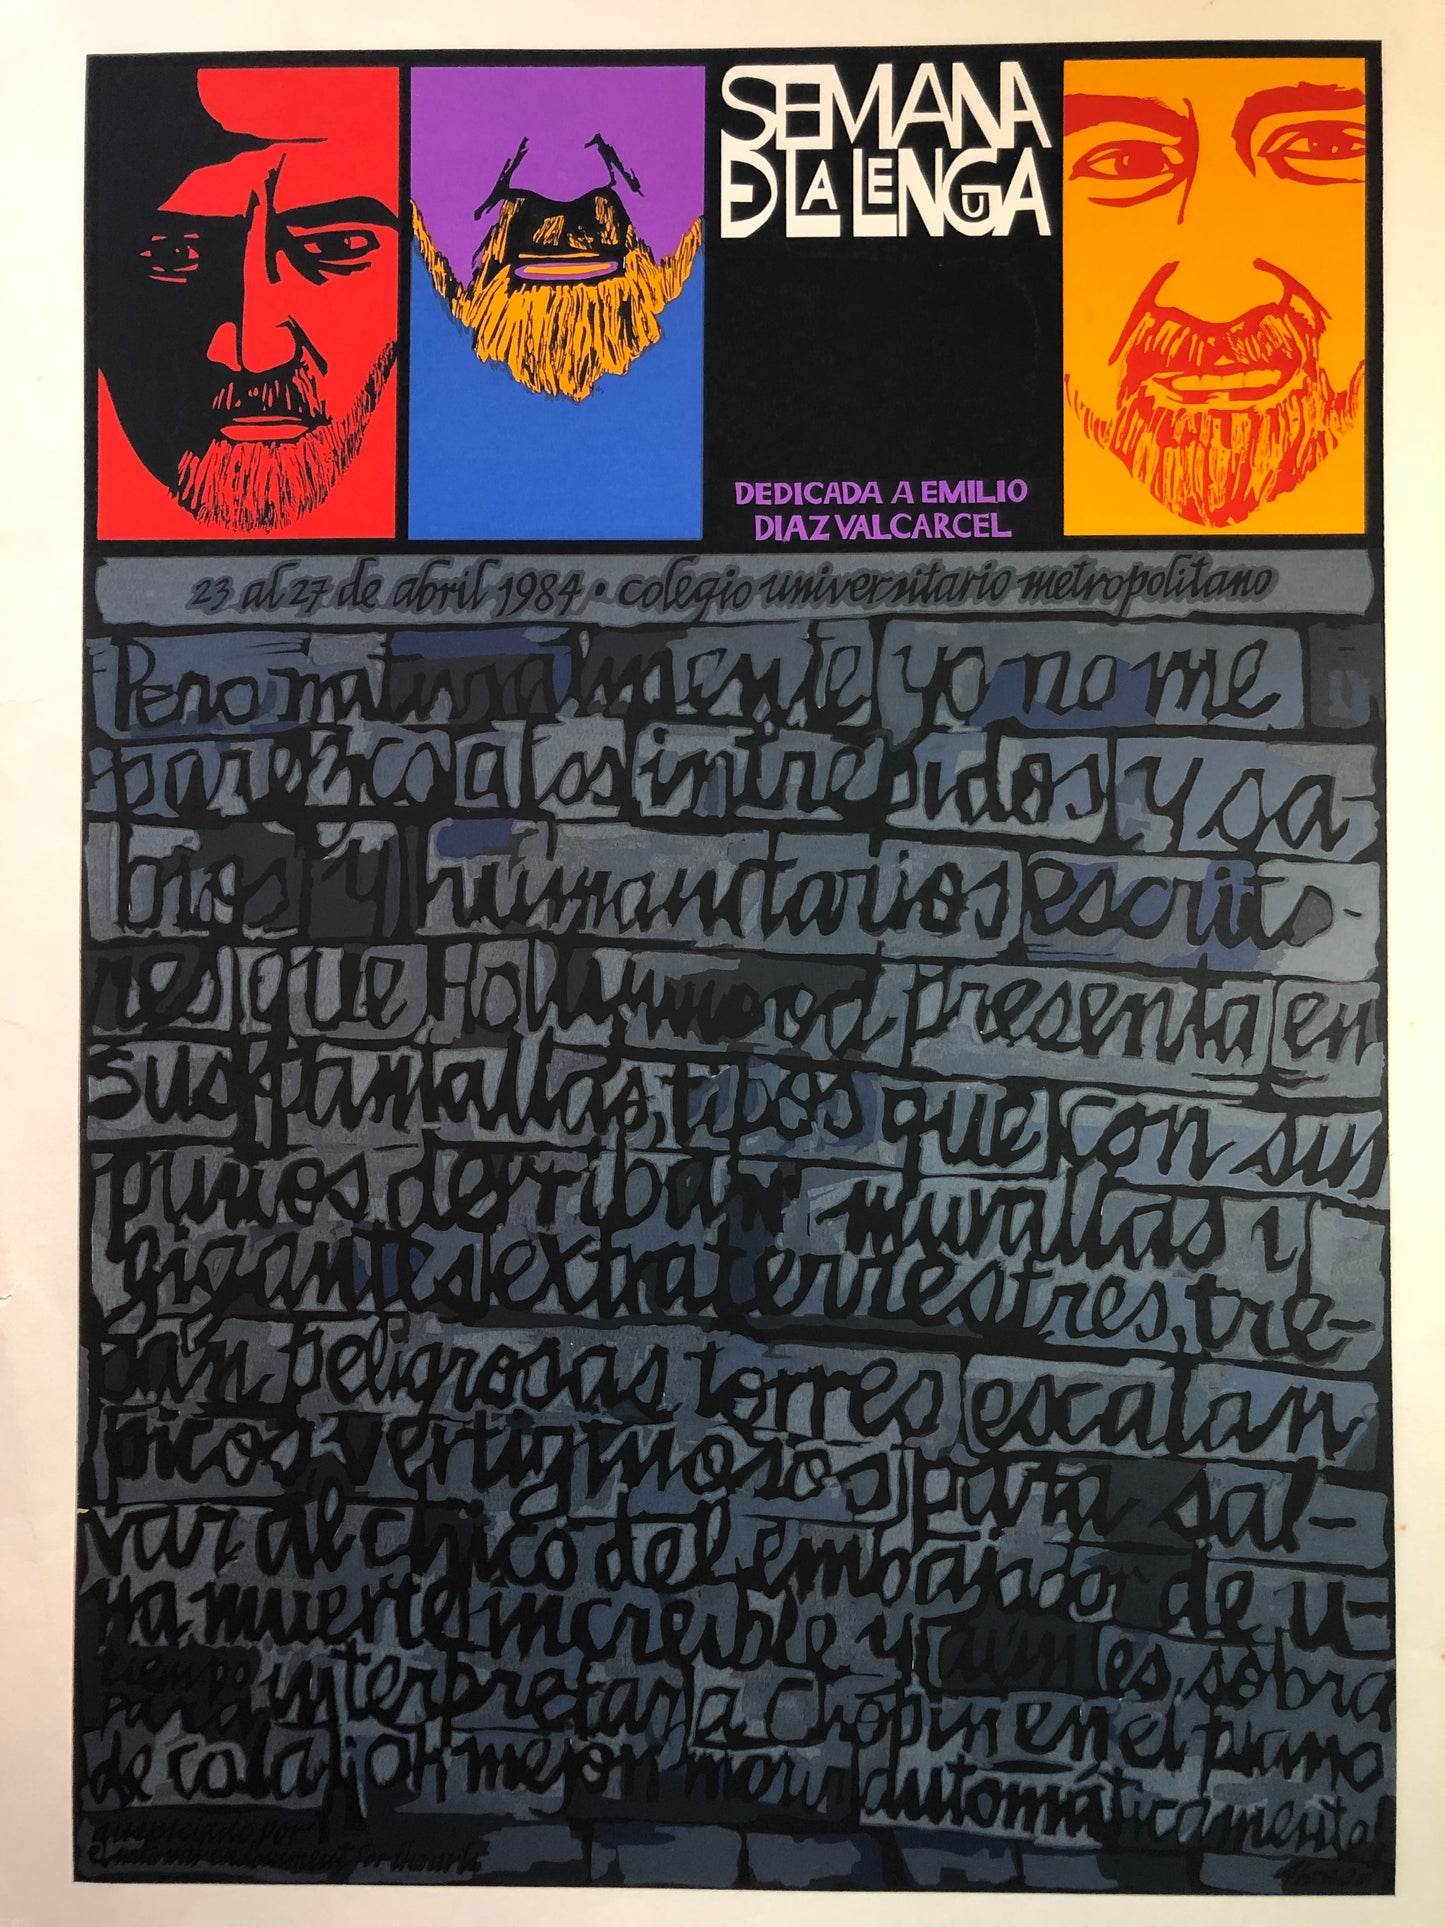 SEMANA
DE LA LENGUA
DEDICADA A EMILIO
DIAZ VALCARCEL
23 al 27 de abril 1984 • colegio universitario metropolitano
Pero naturalmente yo no me
parezco a los intrépidos y sa-
bios y humanitarios escrito-
res que Hollywood presenta en
sus pantallas, tipos que con sus
puños derriban murallas y
gigantes extraterrestres, tre-
pan peligrosas torres escalan
picos vertiginosos para sal-
var al chico del embajador de u-
na muerte increible y aún es, sobra
tiempo para interpretar a Chopin en el piano
de cola ¡oh mejor morir automáticamente!
auspiciado por
national endowment for the arts